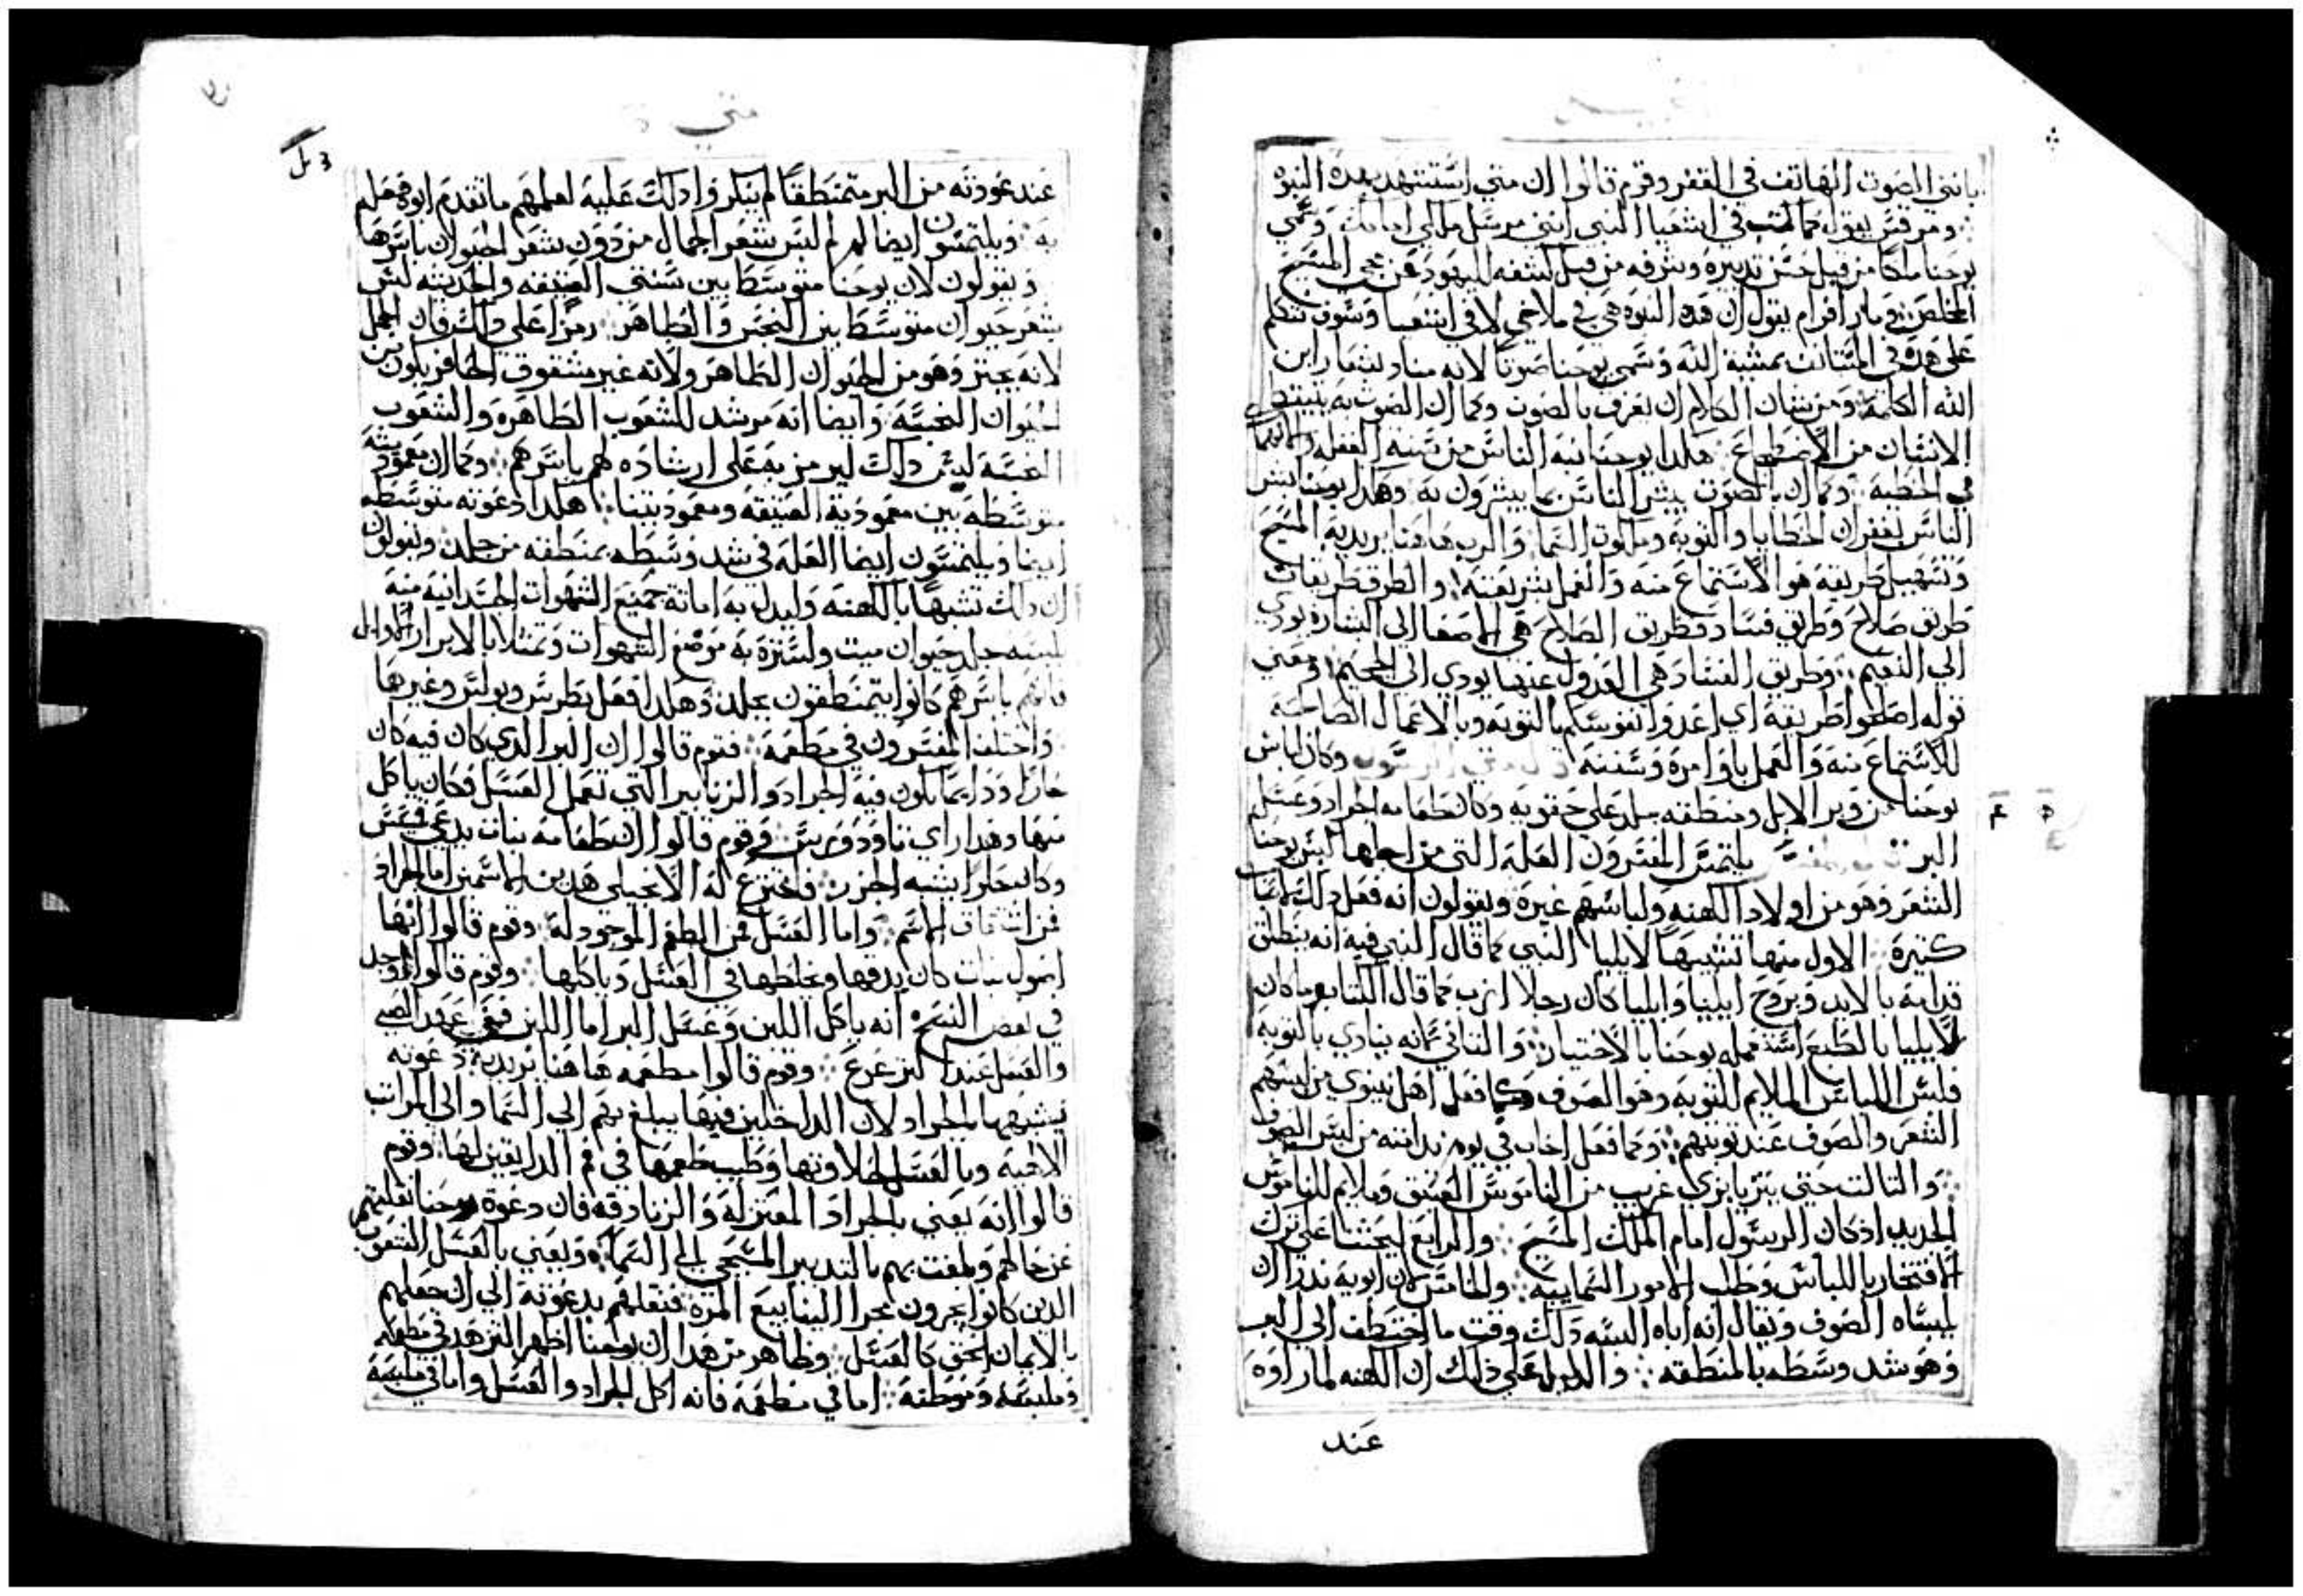 بانني الصوت الهاتف في القفر وقوم قالوا ان متي استشهد بهده النبوه
ومرقس يقول كما كتب في اشعيا النبي انني مرسل ملاكي امامك وسمي
يوحنا ملاكا من قبل حسن تدبيره وشرفه من قبل كشفه لليهود عن مجي المسيح
المخلص ومار افرام يقول ان هده النبوه هي في ملاخي لا في اشعيا وسوف نتكلم
علي هده في المتانت بمشية الله وسمي يوحنا صوتا لانه مناد بشعار ابن
الله الكلمة ومن شان الكلام ان يعرف بالصوت وكما ان الصوت به يتيقظ
الانسان من الاضطجاع هكدا يوحنا نبه الناس من سنة الغفلة والانهماك
في الخطية وكما ان بالصوت يبشر الناس بما يبشرون به وهكدا يوحنا بشر
الناس بغفران الخطايا والتوبه وملكوت السما والرب هاهنا يريد به المسيح
وتسهيل طريقه هو الاستماع منه والعمل بشريعته والطرق طريقان
طريق صلاح وطريق فساد فطريق الصلاح هي الاصغا الي البشاره يودي
الي النعيم وطريق الفساد هي العدول عنها يودي الي الجحيم ومعني
قوله اصلحوا طريقه اي اعدوا نفوسكم بالتوبه وبالاعمال الصالحه
للاستماع منه والعمل باوامره وسننه قال متي الرسول وكان لباس
يوحنا من وبر الابل ومنطقته جلد علي حقويه وكان طعامه الجراد وعسل
البر يلتمس المفسرون العله التي من اجلها لبس يوحنا
الشعر وهو من اولاد الكهنه ولباسهم غيره ويقولون انه فعل دلك لاسباب
كتيره الاول منها تشبيها لايليا النبي كما قال النبي فيه انه ينطلق
قدامه بالايد وبروح ايليا وايليا كان رجلا ازب كما قال الكتاب وما كان
لايليا بالطبع استعمله يوحنا بالاختيار والتاني لانه ينادي بالتوبة
فلبس اللباس الملايم للتوبه وهو الصوف وكما فعل اهل نينوي من لبسهم
الشعر والصوف عند توبتهم وكما فعل اخاب في يوم ندامته من لبس الصوف
والتالت حتي يتزيا بزي غريب من الناموس العتيق وملايم للناموس
الجديد اد كان الرسول امام الملك المسيح والرابع ليحتنا علي ترك
الافتخار باللباس وطلب الامور السماييه والخامس لان ابويه ندرا ان
يلبساه الصوف ويقال انه اباه البسه دلك وقت ما اختطف الي البر
وهو شد وسطه بالمنطقه والدليل علي دلك ان الكهنه لما راوه
عند
متي
عند عودته من البر متمنطقا لم ينكروا دلك عليه لعلمهم ما تقدم ابوه فعلم
به ويلتمسون ايضا لم لبس شعر الجمال من دون شعر الحيوان باسرها
ويقولون لان يوحنا متوسط بين سنتي العتيقه والحديته لبس
شعر حيوان متوسط بين النجس والطاهر رمزا علي والسرفان الجمل
لانه يجتر وهو من الحيوان الطاهر ولانه غير مشقوق الحافر يكون من
الحيوان النجسه وايضا انه مرشد للشعوب الطاهره والشعوب
النجسه لبس دلك ليرمز به علي ارشاده لهم باسرهم وكما ان معموديته
متوسطه بين معمودية العتيقه ومعموديتنا هكدا دعوته متوسطه
ايضا ويلتمسون ايضا العله في شد وسطه بمنطقه من جلد ويقولون
ان دلك تشبها بالكهنه وليدل به اماتة جميع الشهوات الجسدانيه منه
بلبسه جلد حيوان ميت ولستره به موضع الشهوات وتمتلا بالابرار الاوايل
فانهم باسرهم كانوا يتمنطقون بجلد وهكدا فعل بطرس وبولس وغيرها
واختلف المفسرون في مطعمه فقوم قالوا ان البر الدي كان فيه كان
حارا ودايما يكون فيه الجراد والزنابير التي تعمل العسل فكان ياكل
منها وهدا راي تاودورس وقوم قالوا ان طعامه نبات يدعي قسس
وكان حلوا يشبه الجزر فاخترع له الانجيلي هدين الاسمين اما الجراد
فمن اشتقاق الاسم واما العسل فمن الطعم الموجود له وقوم قالوا انها
اصول نبات كان يدقها ويخلطها في العسل وياكلها وقوم قالوا وجد
في بعض النسخ انه ياكل اللبن وعسل البر اما اللبن ففي عهد الصبي
والعسل عند الترعرع وقوم قالوا مطعمه هاهنا يريد به دعوته
يشبهها بالجراد لان الداخلين فيها يبلغ بهم الي السما والي المراتب
الالهيه وبالعسل لحلاوتها وطيب طعمها في فم الدايقين لها وقوم
قالوا انه يعني بالجراد المعتزله والزنادقه فان دعوة يوحنا نقلتهم
عن حالهم ولمعت بهم بالتدبير المسيحي الي السما ويعني بالعسل الشعوب
الدين كانوا يجرون مجرا الينابيع المره فنقلهم بدعوته الي ان جعلهم
بالايمان الحق كالعسل وظاهر من هدا ان يوحنا اظهر التزهد في مطعمه
وملبسه وموطنه اما في مطعمه فانه اكل الجراد والعسل واما في ملبسه